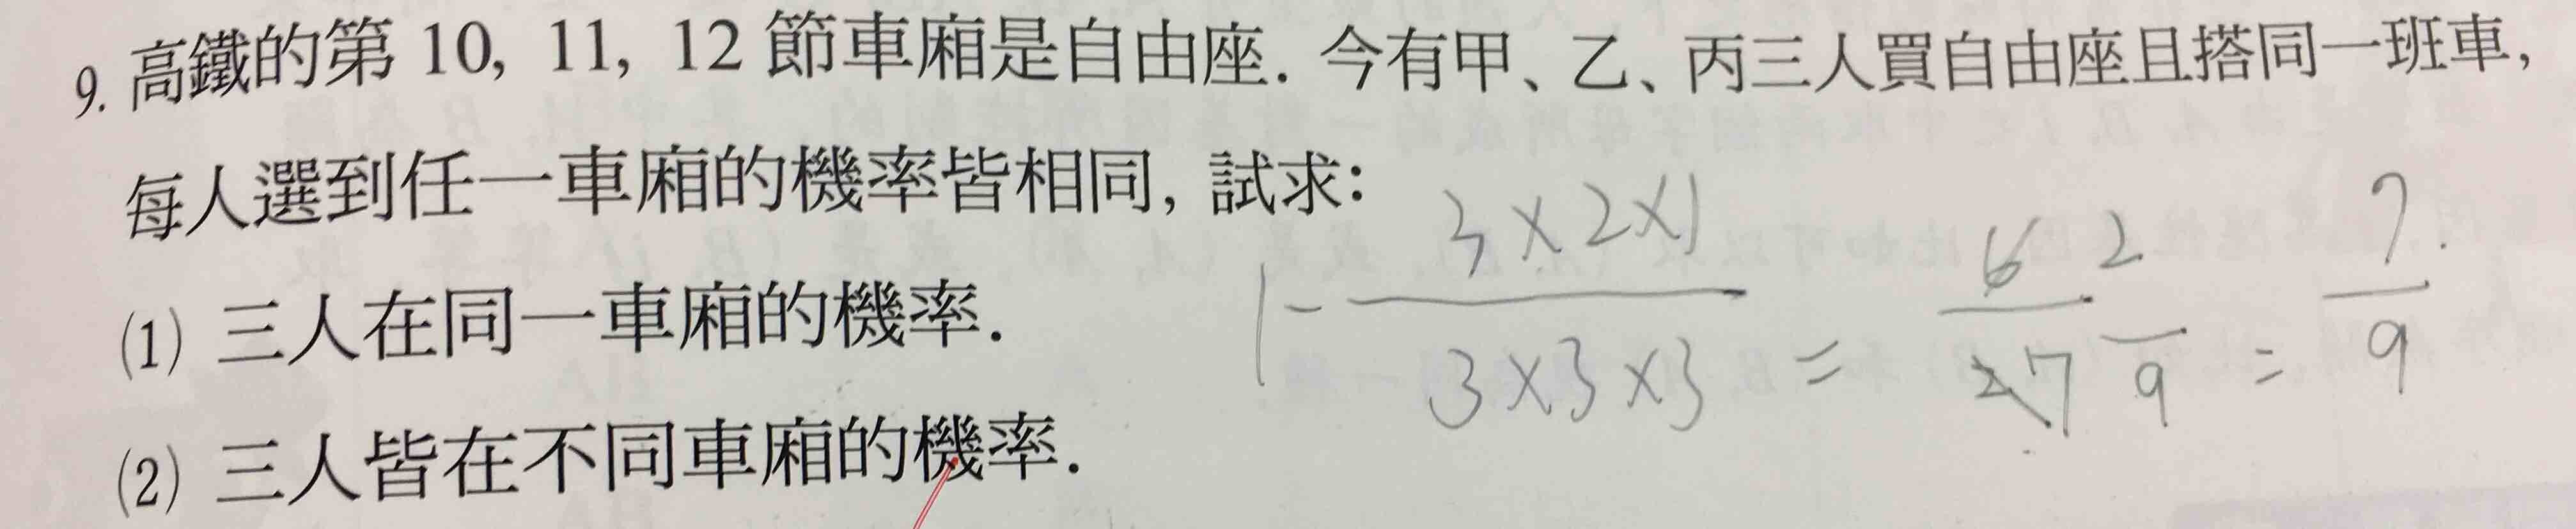 9. 高鐵的第 10, 11, 12 節車廂是自由座. 今有甲、乙、丙三人買自由座且搭同一班車,
每人選到任一車廂的機率皆相同, 試求:
(1) 三人在同一車廂的機率.
(2) 三人皆在不同車廂的機率.
1 - 3×2×1 / 3×3×3 = 6/27 2/9 = 7/9